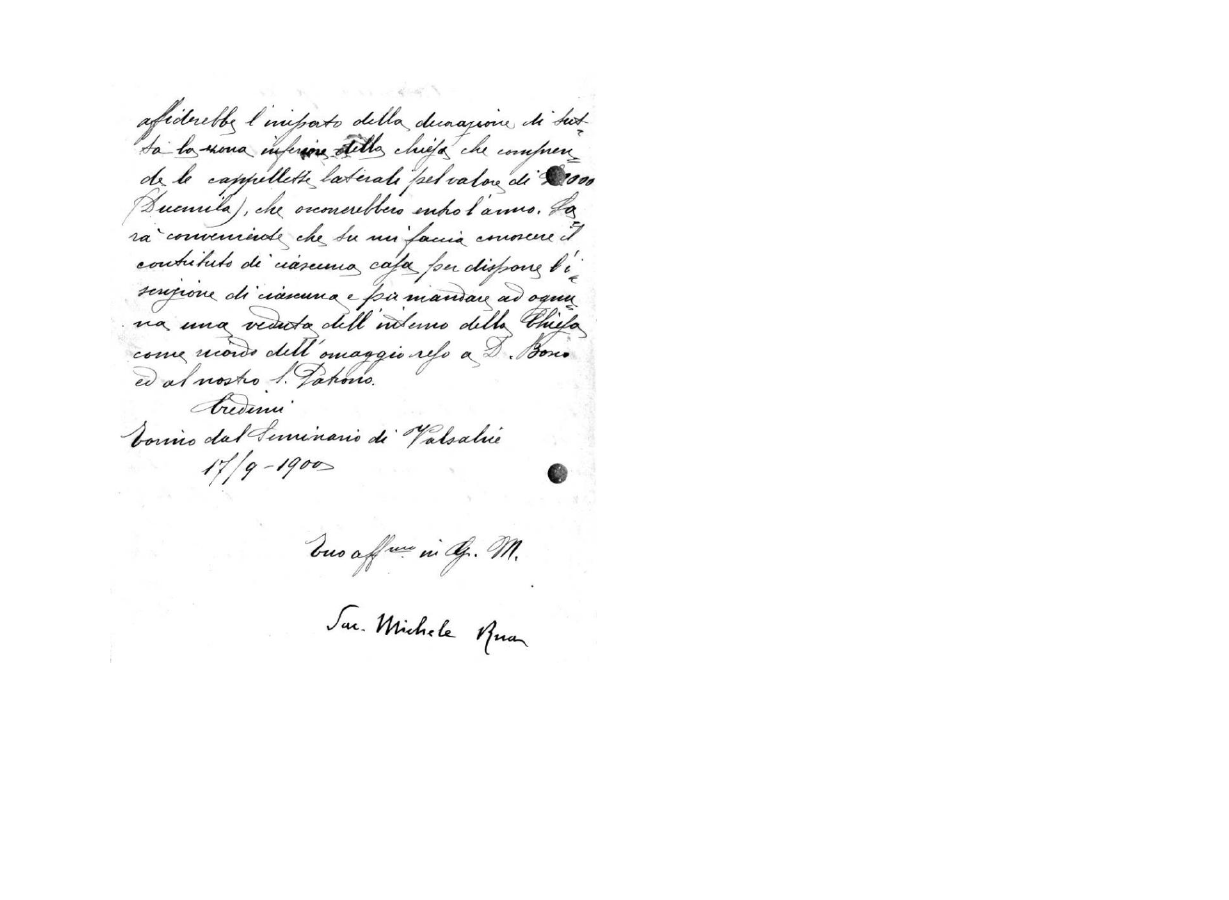 affiderebbe l'importo della decorazione di tut=
ta la zona inferiore della chiesa che compren=
de le cappellette laterali pel valore di £2000
(Duemila), che occorrerebbero entro l'anno. Sa=
rà conveniente che tu mi faccia conoscere il
contributo di ciascuna casa per disporre l'i=
scrizione di ciascuna e per mandare ad ognu=
na una veduta dell'interno della Chiesa
come ricordo dell'omaggio reso a D. Bosco
ed al nostro S. Patrono.
Credimi
Torino dal Seminario di Valsalice
17/9-1900
Tuo aff.mo in G. M.
Sac. Michele Rua